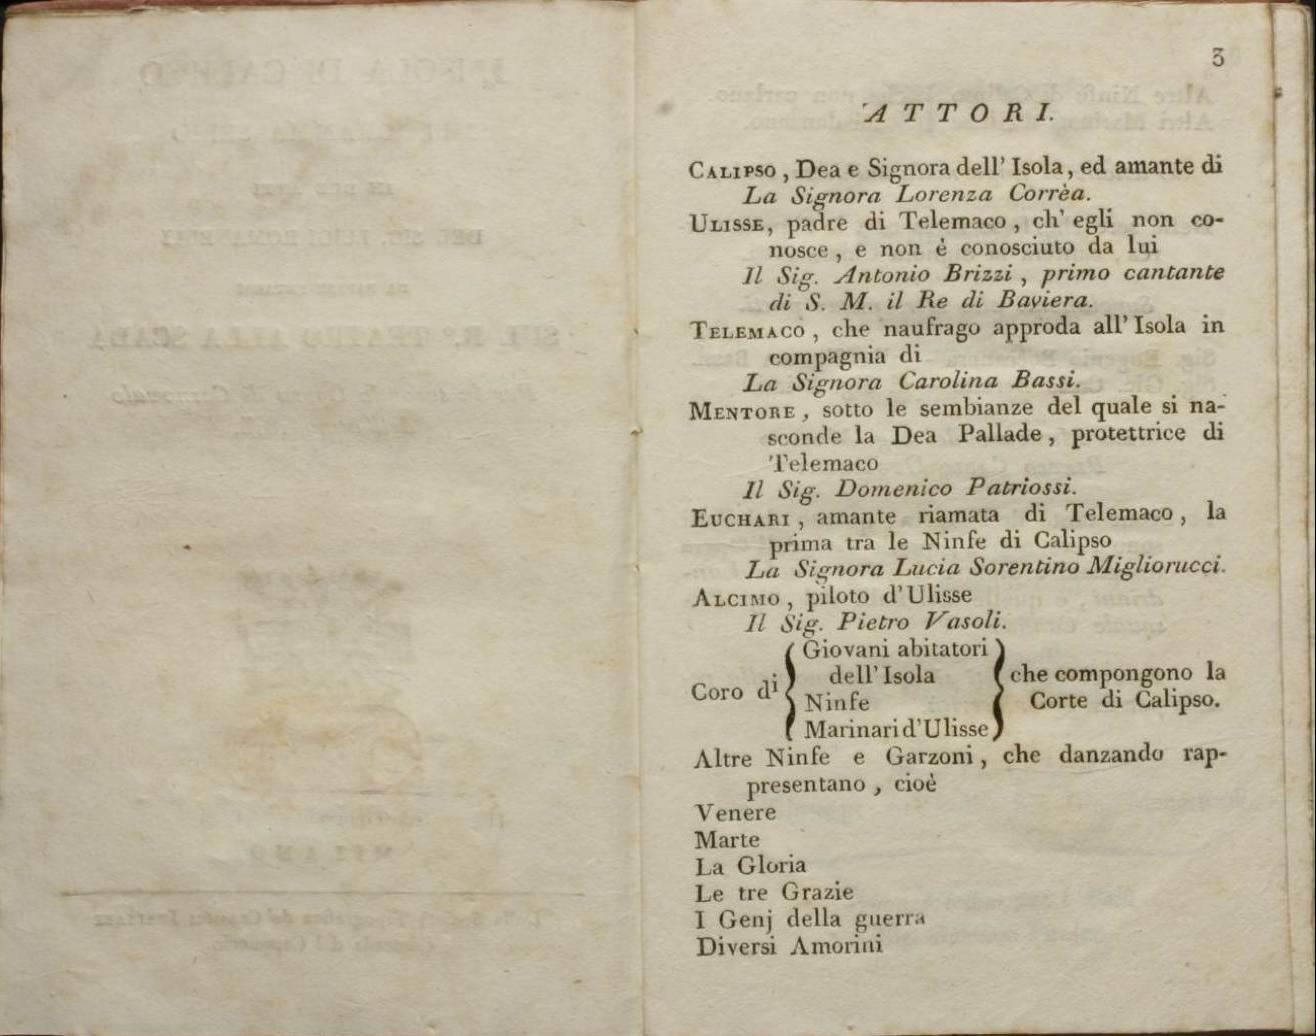 3
ATTORI.
CALIPSO, Dea e Signora dell' Isola, ed amante di
La Signora Lorenza Corrèa.
ULISSE, padre di Telemaco, ch' egli non co-
nosce, e non è conosciuto da lui
Il Sig. Antonio Brizzi, primo cantante
di S. M. il Re di Baviera.
TELEMACO, che naufrago approda all' Isola in
compagnia di
La Signora Carolina Bassi.
MENTORE, sotto le sembianze del quale si na-
sconde la Dea Pallade, protettrice di
Telemaco
Il Sig. Domenico Patriossi.
EUCHARI, amante riamata di Telemaco, la
prima tra le Ninfe di Calipso
La Signora Lucia Sorentino Migliorucci.
ALCIMO, piloto d' Ulisse
Il Sig. Pietro Vasoli.
Coro di
Giovani abitatori
dell' Isola
Ninfe
Marinari d' Ulisse
che compongono la
Corte di Calipso.
Altre Ninfe e Garzoni, che danzando rap-
presentano, cioè
Venere
Marte
La Gloria
Le tre Grazie
I Genj della guerra
Diversi Amorini